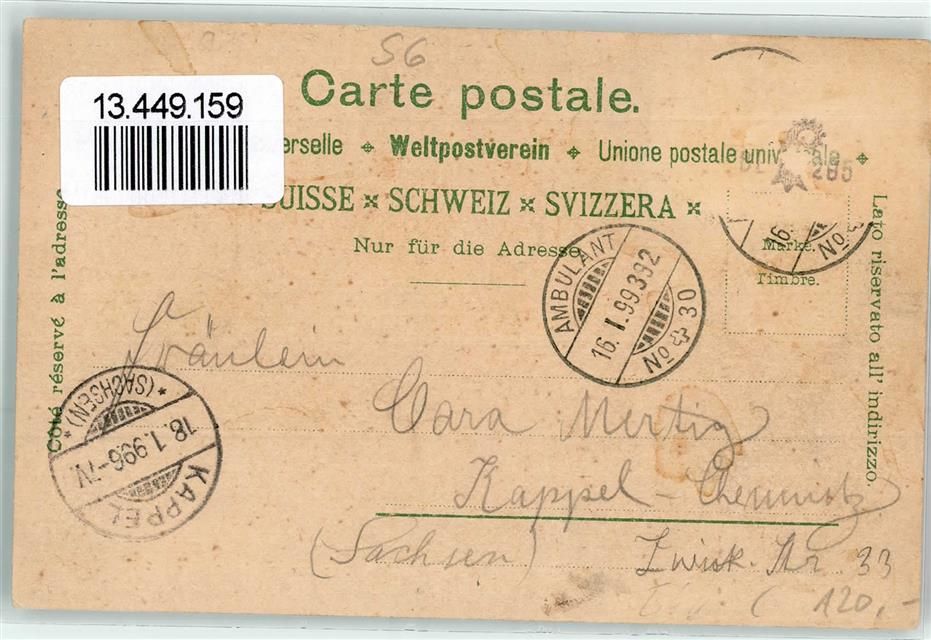 56
Carte postale.
13.449.159
erselle ✦ Weltpostverein ✦ Unione postale univ ale ✦
285
SUISSE ✕ SCHWEIZ ✕ SVIZZERA ✕
Nur für die Adresse
Côté réservé à l'adresse
Lato riservato all' indirizzo.
Marke.
Timbre.
16. No
AMBULANT
16. I. 99 392
No 30
Fräulein
Clara Mertig
Kappel - Chemnitz
(Sachsen)
Zwick. Str 33
120,-
* (SACHSEN) *
18. 1. 99 6-7V
KAPPEL